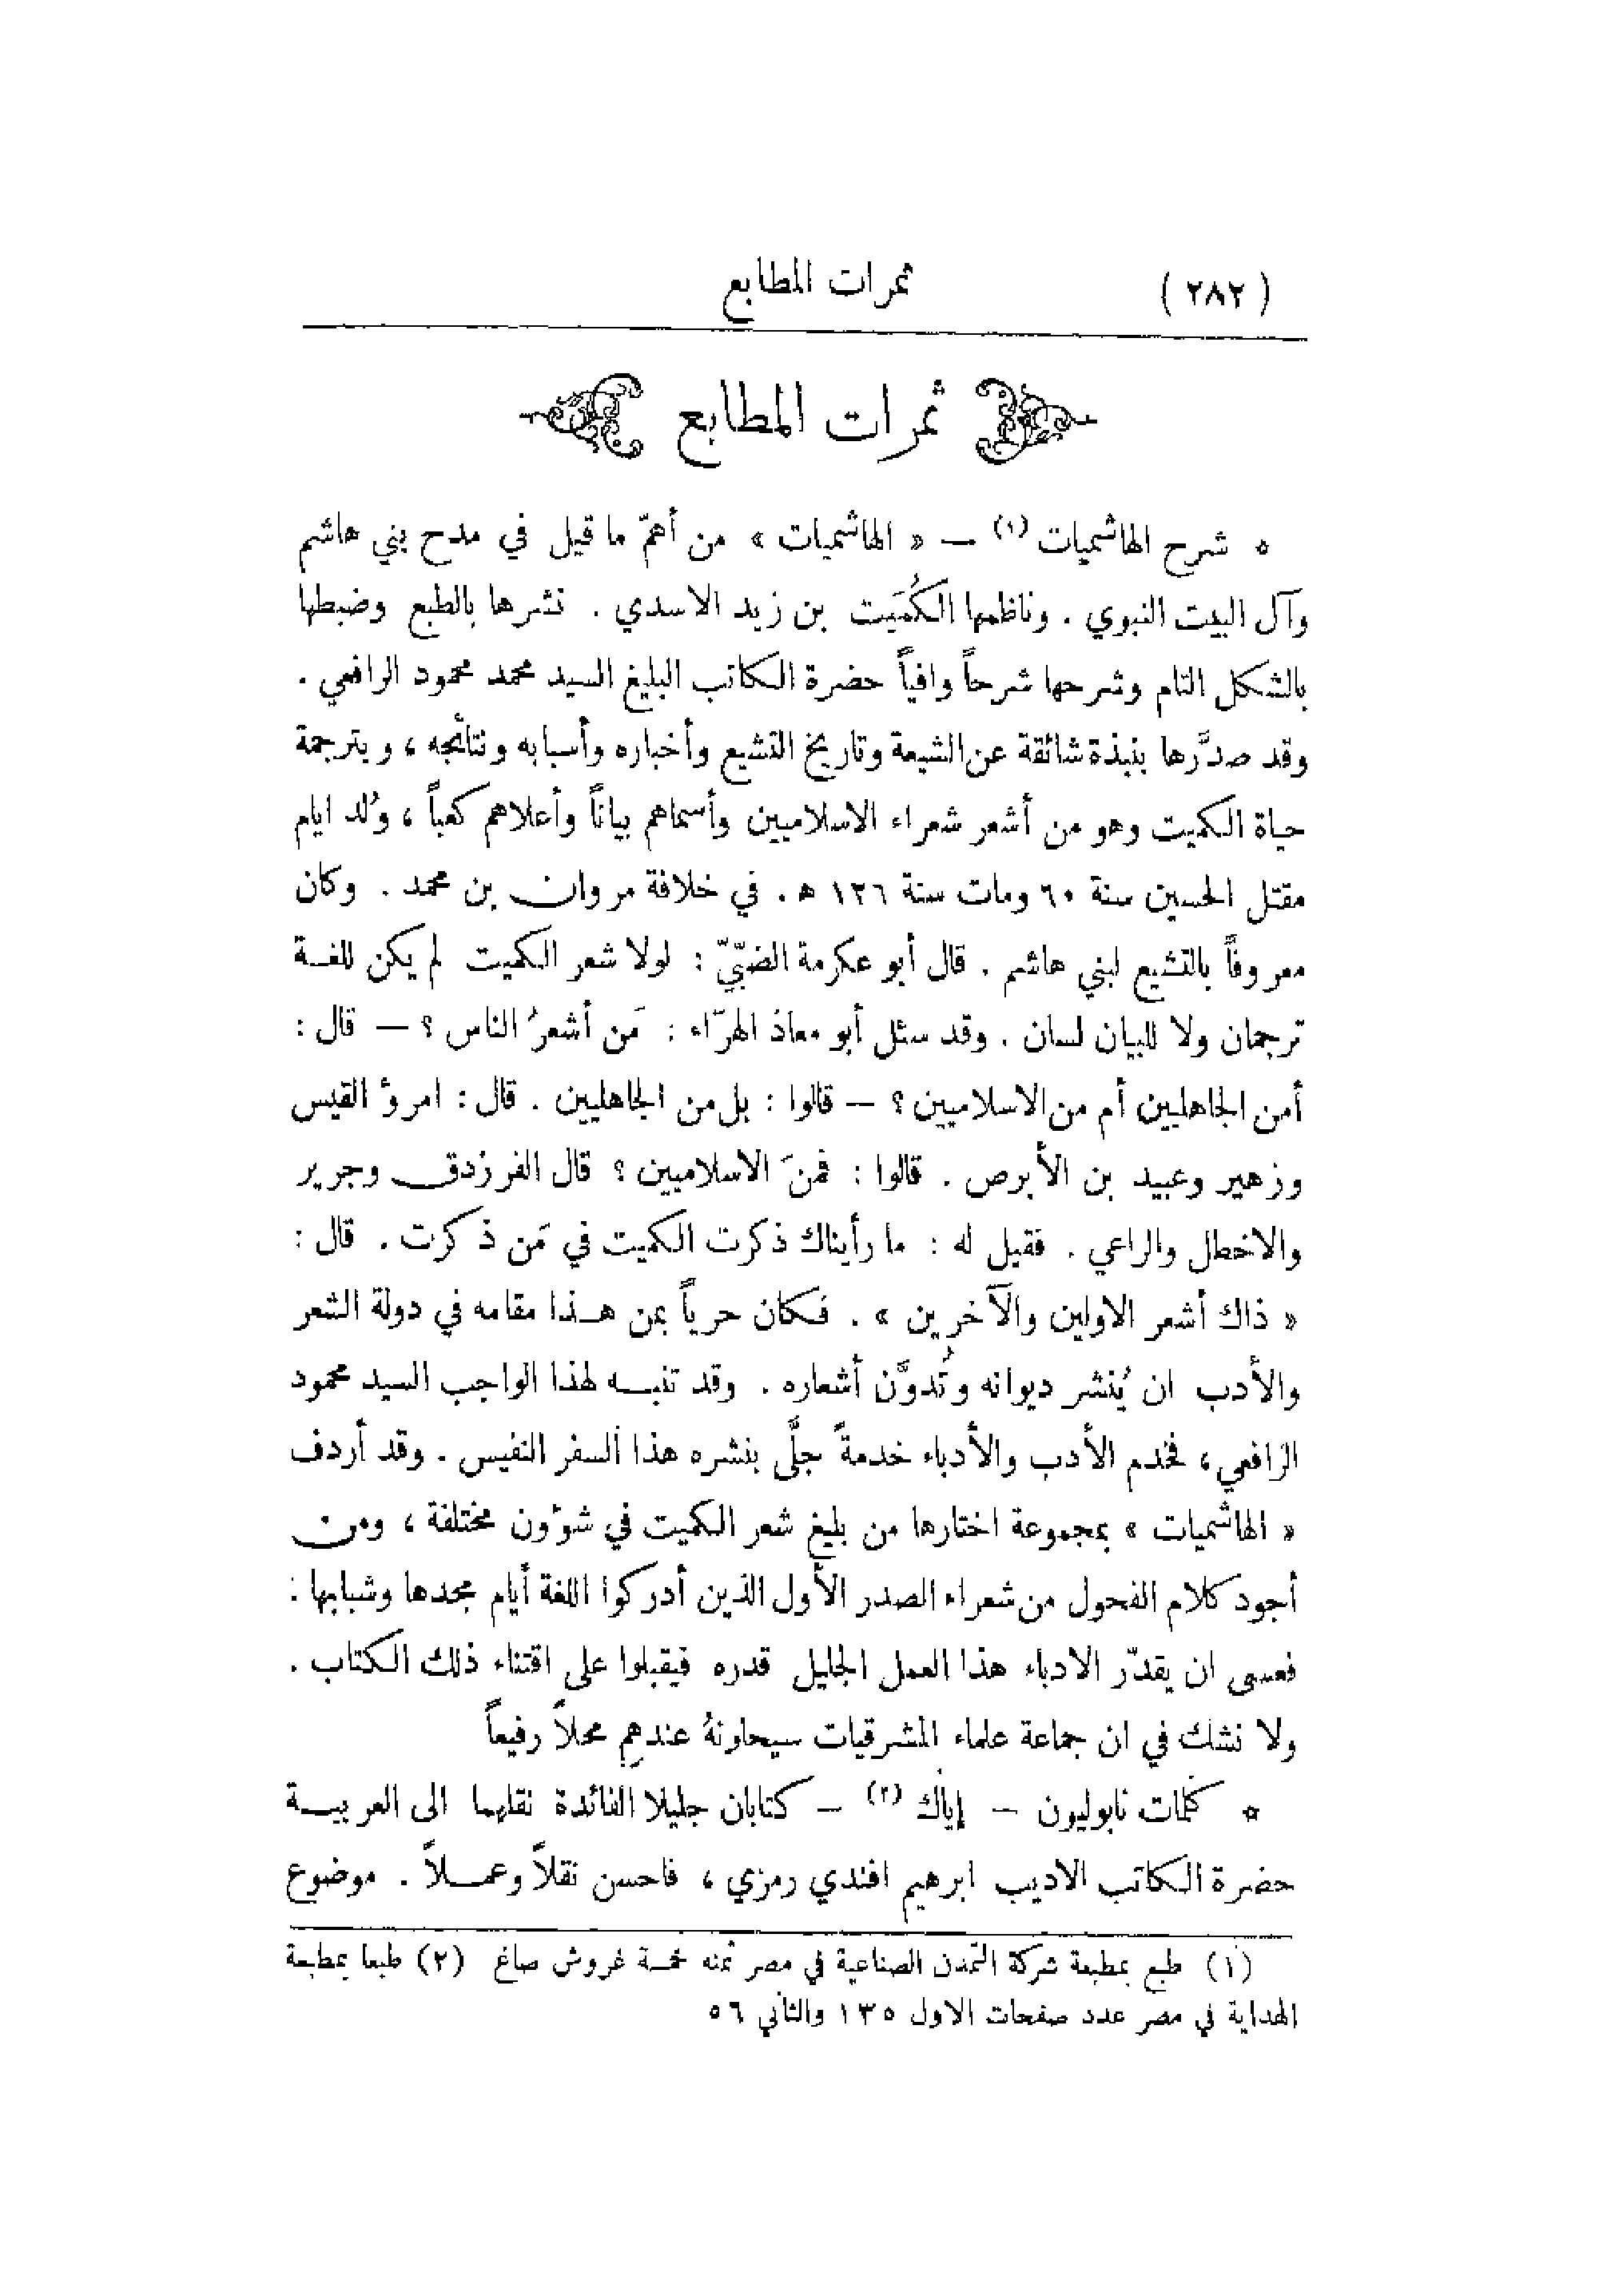 ( ٢٨٢ ) ثمرات المطابع
ثمرات المطابع
* شرح الهاشميات (١) — « الهاشميات » من أهمّ ما قيل في مدح بني هاشم
وآل البيت النبوي . وناظمها الكُمَيت بن زيد الاسدي . نشرها بالطبع وضبطها
بالشكل التام وشرحها شرحاً وافياً حضرة الكاتب البليغ السيد محمد محمود الرافعي .
وقد صدَّرها بنبذة شائقة عن الشيعة وتاريخ التشيع وأخباره وأسبابه ونتائجه ، وبترجمة
حياة الكميت وهو من أشعر شعراء الاسلاميين وأسماهم بياناً وأعلاهم كعباً ، وُلد ايام
مقتل الحسين سنة ٦٠ ومات سنة ١٢٦ ه . في خلافة مروان بن محمد . وكان
معروفاً بالتشيع لبني هاشم . قال أبو عكرمة الضبّيّ : لولا شعر الكميت لم يكن للغة
ترجمان ولا للبيان لسان . وقد سئل أبو معاذ الهرّاء : مَن أشعرُ الناس ؟ — قال :
أمن الجاهليين أم من الاسلاميين ؟ — قالوا : بل من الجاهليين . قال : امرؤ القيس
وزهير وعبيد بن الأبرص . قالوا : فمَن الاسلاميين ؟ قال الفرزدق وجرير
والاخطل والراعي . فقيل له : ما رأيناك ذكرت الكميت في مَن ذكرت . قال :
« ذاك أشعر الاولين والآخرين » . فكان حرياً بمن هذا مقامه في دولة الشعر
والأدب ان يُنشر ديوانه وتُدوَّن أشعاره . وقد تنبه لهذا الواجب السيد محمود
الرافعي ، فخدم الأدب والأدباء خدمةً جلَّى بنشره هذا السفر النفيس . وقد أردف
« الهاشميات » بمجموعة اختارها من بليغ شعر الكميت في شؤون مختلفة ، ومن
أجود كلام الفحول من شعراء الصدر الأول الذين أدركوا اللغة أيام مجدها وشبابها :
فعسى ان يقدّر الادباء هذا العمل الجليل قدره فيقبلوا على اقتناء ذلك الكتاب .
ولا نشك في ان جماعة علماء المشرقيات سيحلونهُ عندهم محلاً رفيعاً
* كلمات نابوليون — إياك (٢) — كتابان جليلا الفائدة نقلهما الى العربية
حضرة الكاتب الاديب ابرهيم افندي رمزي ، فاحسن نقلاً وعملاً . موضوع
(١) طبع بمطبعة شركة التمدن الصناعية في مصر ثمنه خمسة غروش صاغ (٢) طبعا بمطبعة
الهداية في مصر عدد صفحات الاول ١٣٥ والثاني ٥٦